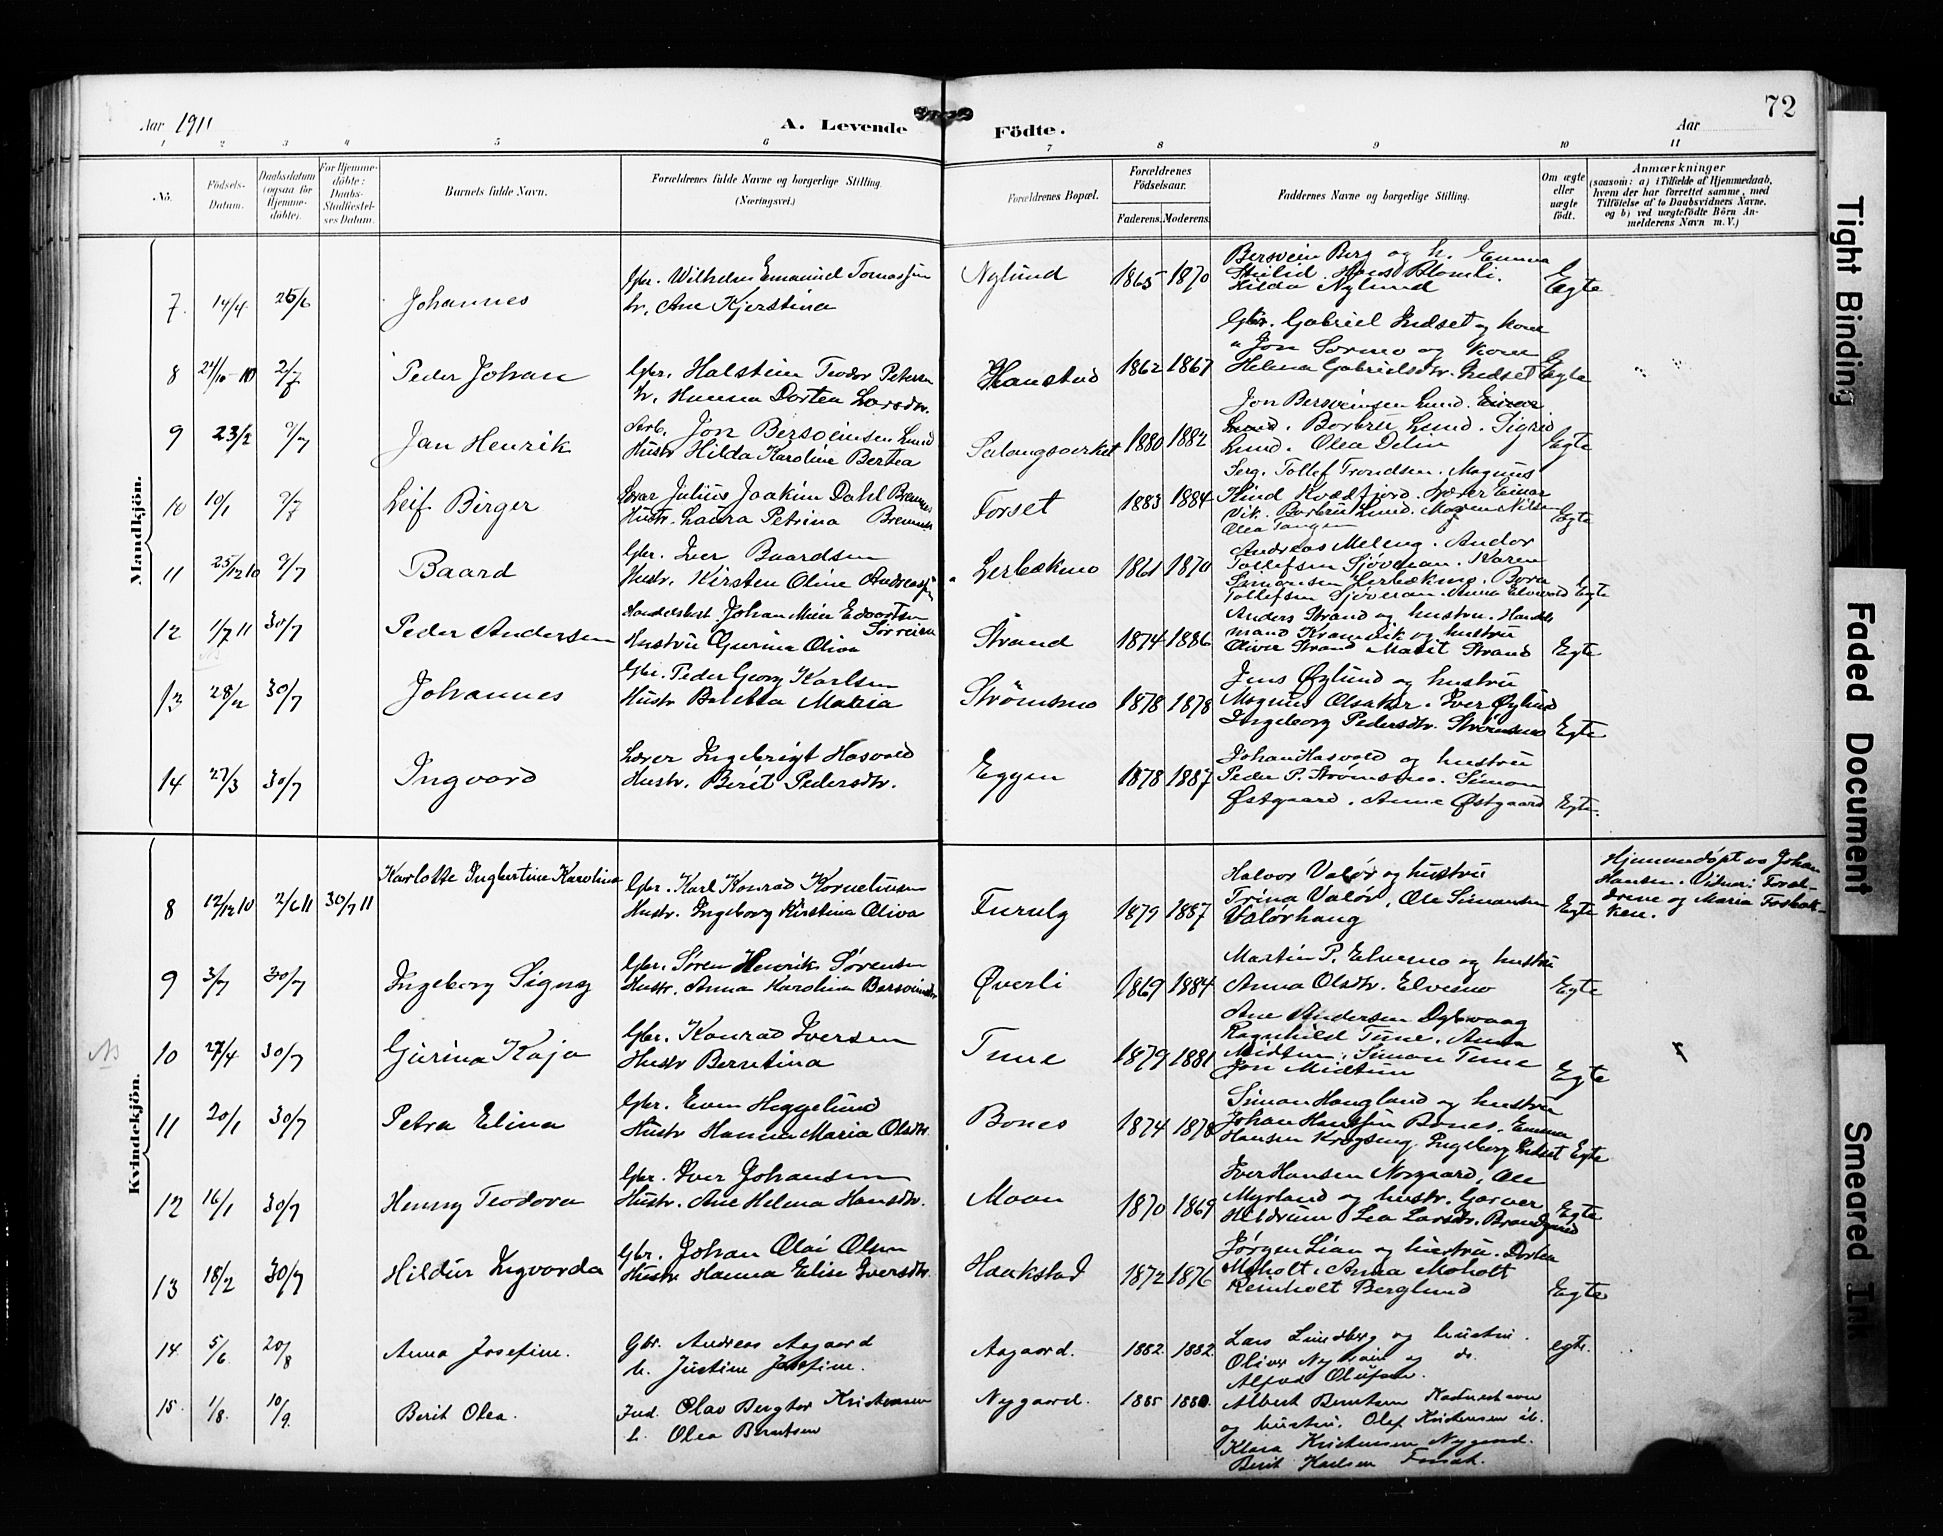 Aar 1911
A. Levende Födte.
Aar
72
1 2 3 4 5 6 7 8 9 10 11
No.
Födsels-Datum.
Daabsdatum (ogsaa for Hjemme-döbte).
For Hjemme-döbte: Daabs-Stadfæstel-ses Datum.
Barnets fulde Navn.
Forældrenes fulde Navne og borgerlige Stilling. (Næringsvei.)
Forældrenes Bopæl.
Forældrenes Födselsaar.
Faderens. Moderens.
Faddernes Navne og borgerlige Stilling.
Om ægte eller uægte födt.
Anmærkninger
(saasom: a) i Tilfælde af Hjemmedaab, hvem der har forrettet samme, med Tilföielse af to Daabsvidners Navne, og b) ved uægtefödte Börn An-melderens Navn m. V.)
Mandkjön.
7 14/4 25/6 Johannes
Gbr. Wilhelm Emanuel Tomassen
h. Ane Kjerstina
Nylund 1865 1870
Bersvein Berg og h. Emma
Hans Blomli.
Hilda Nylund
Egte
8 21/10-10 2/7 Peder Johan
Gbr. Halstein Teodor Petersen
h. Hanna Dortea Larsdtr.
Hanstad 1862 1867
Gbr. Gabriel Indset og kone
" Jon Sørmo og kone
Helena Gabrielsdtr. Indset
Egte
9 23/2 9/7 Jan Henrik
Arb. Jon Bersveinsen Lund
Hustr Hilda Karoline Bertea
Salangsverket 1880 1882
Jon Bersveinsen Lund. Einar
Lund. Borbru Lund. Sigrid
Lund. Olea Delin
Egte
10 10/1 9/7 Leif Birger
Lærer Julius Joakim Dahl Bremnes
Hustr. Laura Petrina Bremnes
Forset 1883 1884
Serg. Tollef Trondsen. Magnus
Hind Kvædfjord. Lærer Einar
Vik. Borbru Lund. Maren Nilsen
Olea Tangen
Egte
11 25/12 10 9/7 Baard
Gbr. Iver Baardsen
Hustr. Kirsten Oline Andreassen
Lerbækmo 1861 1870
Andreas Meleng. Andor
Tollefsen Sjøvegan. Karen
Simonsen Lerbækmo. Bora
Tollefsen Sjøvegan. Anna Elverod
Egte
12 1/7 11 30/7 Peder Andersen
Handelsbest. Johan Meier Edvartsen
Sørreisa
Hustru Gurina Oliva
Strand 1874 1886
Anders Strand og hustru. Handels
mand Kramvik og hustru
Oliver Strand Marit Strand
Egte
13 28/12 30/7 Johannes
Gbr. Peder Georg Karlsen
Hustr Bolette Matea
Strømsmo 1878 1878
Jens Øylund og hustru
Magnus Olsaker. Iver Øylund
Ingeborg Pedersdtr. Strømsmo
Egte
14 27/3 30/7 Ingvard
Lærer Ingebrigt Hasvold
Hustr. Berit Pedersdtr.
Eggen 1878 1887
Johan Hasvold og hustru
Peder P. Strømsmo. Simon
Østgaard. Anne Østgaard
Egte.
Kvindekjön.
8 12/12 10 2/6 11 30/7 11 Karlotte Ingbertine Karolina
Gbr. Karl Konrad Kornelinsen
Hustr. Ingeborg Kirstina Oliva
Furulg 1879 1887
Halvor Valør og hustru
Trina Valør, Ole Simonsen
Valørhaug
Egte
Hjemmedøpt av Johan
Hansen. Vitner: Foræl-
drene og Maria Fosbak-
ken.
9 3/7 30/7 Ingeborg Signy
Gbr. Søren Henrik Sørensen
Hustr. Anna Karolina Bersveinsdtr
Øverli 1869 1884
Martin P. Elvesmo og hustru
Anna Olsdtr. Elvesmo
Egte
NB 10 27/4 30/7 Gurina Kaja
Gbr. Konrad Iversen
Hustr Berntina
Tune 1879 1881
Ane Andersen Dybwaag
Ragnhild Tune, Anna
Midtun, Simon Tune
Jon Midtun
Egte
11 20/1 30/7 Petra Elina
Gbr. Even Heggelund
Hustr Hanna Maria Olsdtr.
Bones 1874 1878
Simon Haugland og hustru
Johan Hansen Bones. Emma
Hansen Krogseng. Ingeborg Indset
Egte
12 16/1 30/7 Henny Teodora
Gbr. Iver Johansen
Hustr. Ane Helena Hansdtr.
Moan 1870 1869
Iver Hansen Norgaard, Ole
Myrland og hustr. Garver
Heldrum Lea Larsdtr. Brandsund
Egte
13 18/2 30/7 Hildur Ingvarda
Gbr. Johan Olai Olsen
Hustr Hanna Elise Iversdtr.
Haakstad 1872 1876
Jørgen Lian og hustru. Dortea
Moholt. Anna Moholt
Reinholt Berglund
Egte
14. 5/6 20/8 Anna Josefine.
Gbr. Andreas Aagaard
h. Justine Josefine.
Aagaard. 1882. 1882.
Lars Lundberg og hustru.
Oliver Nymoen og do.
Alfred Olufsen.
egte.
15. 1/8. 10/9. Berit Olea.
Ind. Olav Bergtor Kristensen
h. Olea Berntsen
Nygaard. 1885 1880.
Albert Berntsen
og hustru. Olef Kristensen ib.
Klara Kristensen Nygaard.
Berit Karlsen Forset.
Tight Binding
Faded Document
Smeared Ink